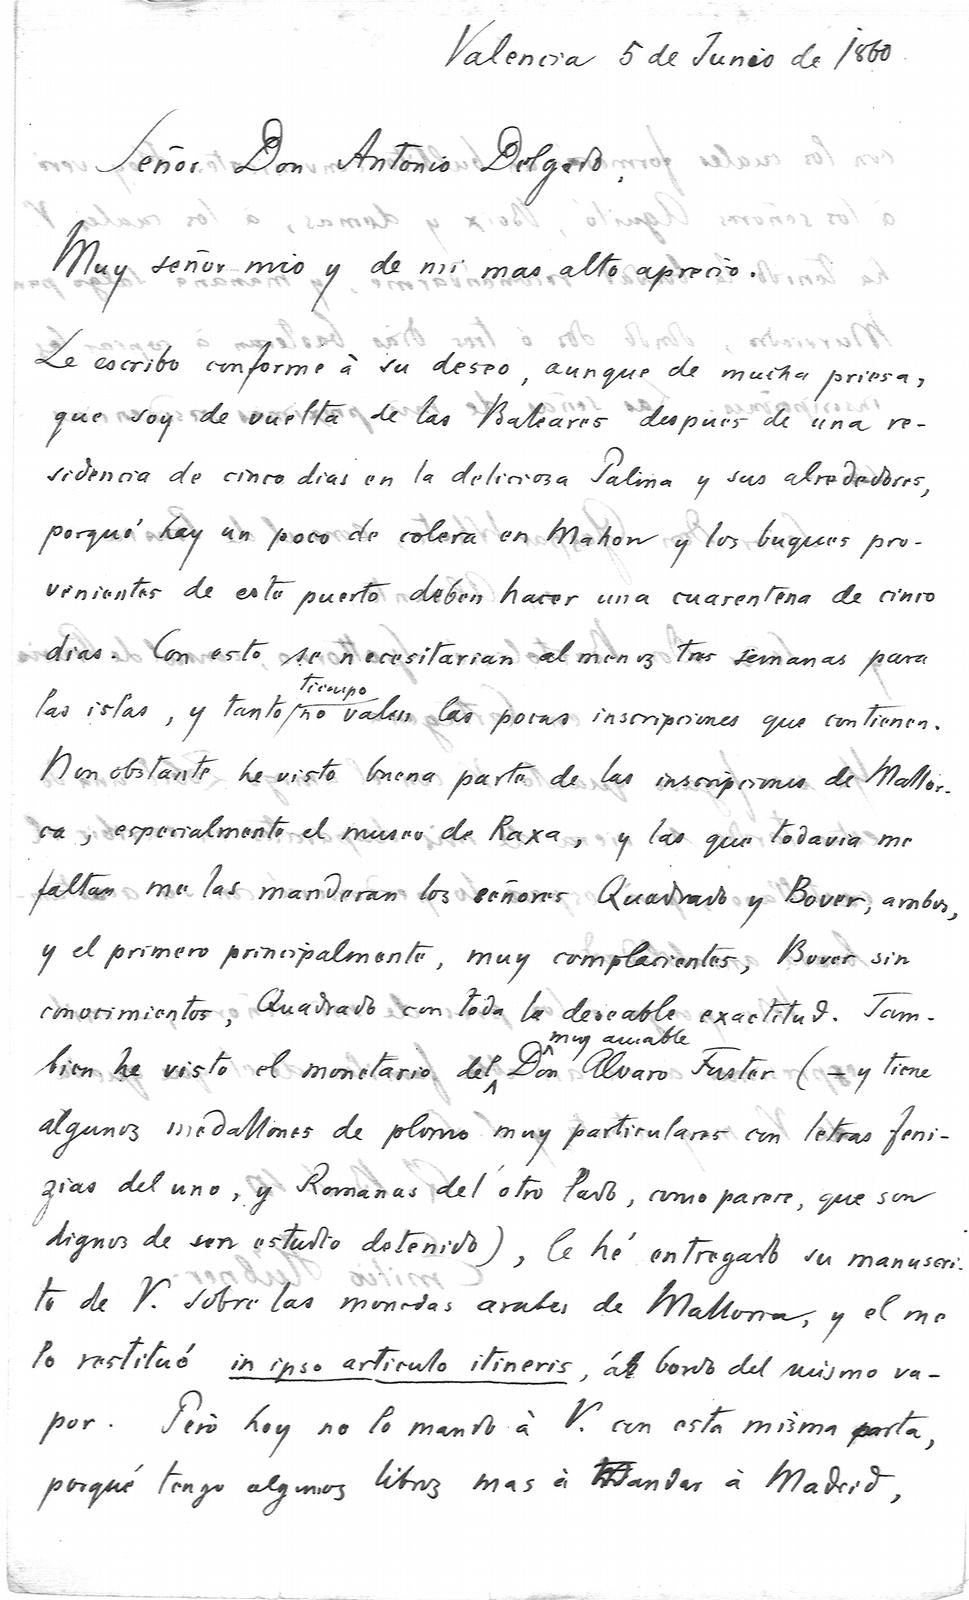 Valencia 5 de Junio de 1860
Señor Don Antonio Delgado,
Muy señor mio y de mi mas alto aprecio.
Le escribo conforme à su deseo, aunque de mucha priesa,
que soy de vuelta de las Baleares despues de una re-
sidencia de cinco dias en la delicioza Palma y sus alrededores,
porqué hay un poco de colera en Mahon y los buques pro-
venientes de este puerto deben hacer una cuarentena de cinco
dias. Con esto se necesitarian al menoz tres semanas para
las islas, y tanto tiempo no valen las pocas inscripciones que contienen.
Non obstante he visto buena parte de las inscripciones de Mallor-
ca, especialmente el museo de Raxa, y las que todavia me
faltan me las manderan los señores Quadrado y Bover, ambos,
y el primero principalmente, muy complacientes, Bover sin
conocimientos, Quadrado con toda la deseable exactitud. Tam-
bien he visto el monetario del muy amable Don Alvaro Fuster (– y tiene
algunoz medallones de plomo muy particulares con letras feni-
zias del uno, y Romanas del otro lado, como parece, que son
dignoz de sen estudio detenido), le hé entregado su manuscri-
to de V. sobre las monedas arabes de Mallorca, y el me
lo restituó in ipso articulo itineris, á bordo del mismo va-
por. Però hoy no lo mando à V. con esta misma carta,
porqué tengo algunoz libroz mas à mandar à Madrid,